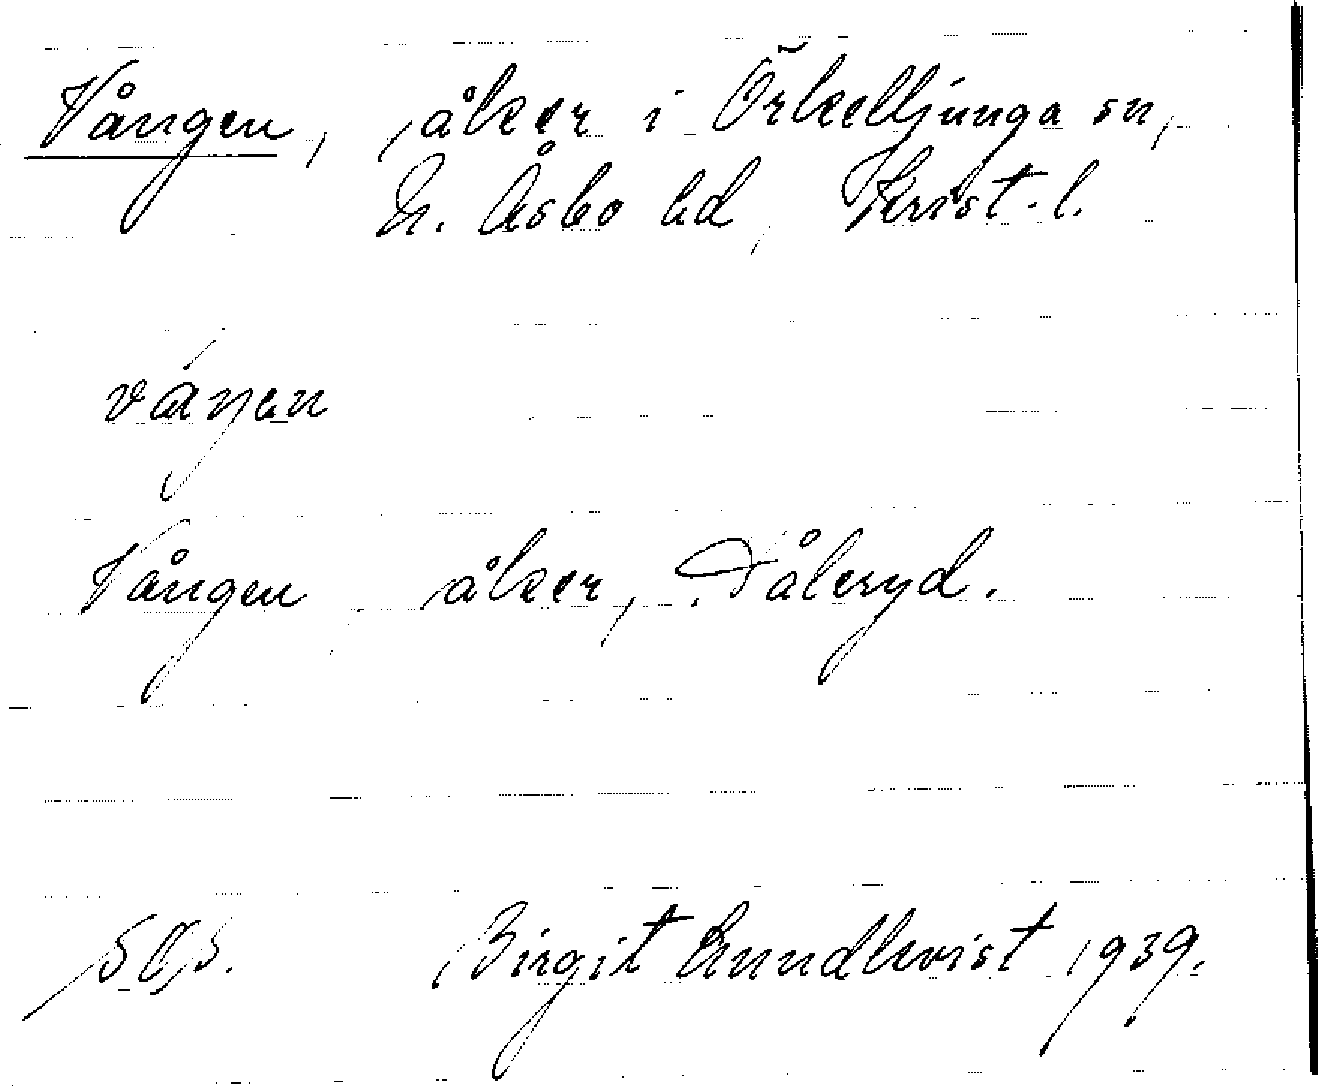 Vången, åker i Örkelljunga sn,
N. Åsbo hd, Krist. l.
váŋen
Vången åker, Tåleryd.
Birgit Lundkvist 1939.